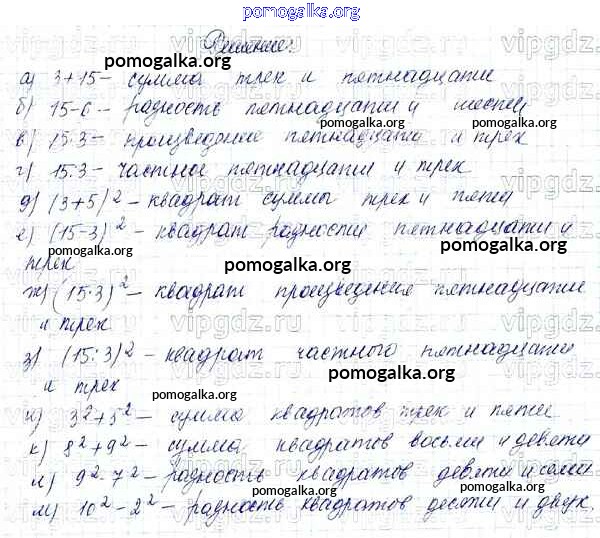 pomogalka.org
Решение:
pomogalka.org
а) 3+15 – сумма трех и пятнадцати
б) 15-6 – разность пятнадцати и шести
pomogalka.org
в) 15·3 – произведение пятнадцати и трех
г) 15:3 – частное пятнадцати и трех
д) (3+5)² – квадрат суммы трех и пяти
е) (15-3)² – квадрат разности пятнадцати и
pomogalka.org
трех
pomogalka.org
ж) (15·3)² – квадрат произведения пятнадцати
и трех
з) (15:3)² – квадрат частного пятнадцати
pomogalka.org
и трех
pomogalka.org
и) 3²+5² – сумма квадратов трех и пяти
к) 8²+9² – сумма квадратов восьми и девяти
л) 9²-7² – разность квадратов девяти и семи
pomogalka.org
м) 10²-2² – разность квадратов десяти и двух.